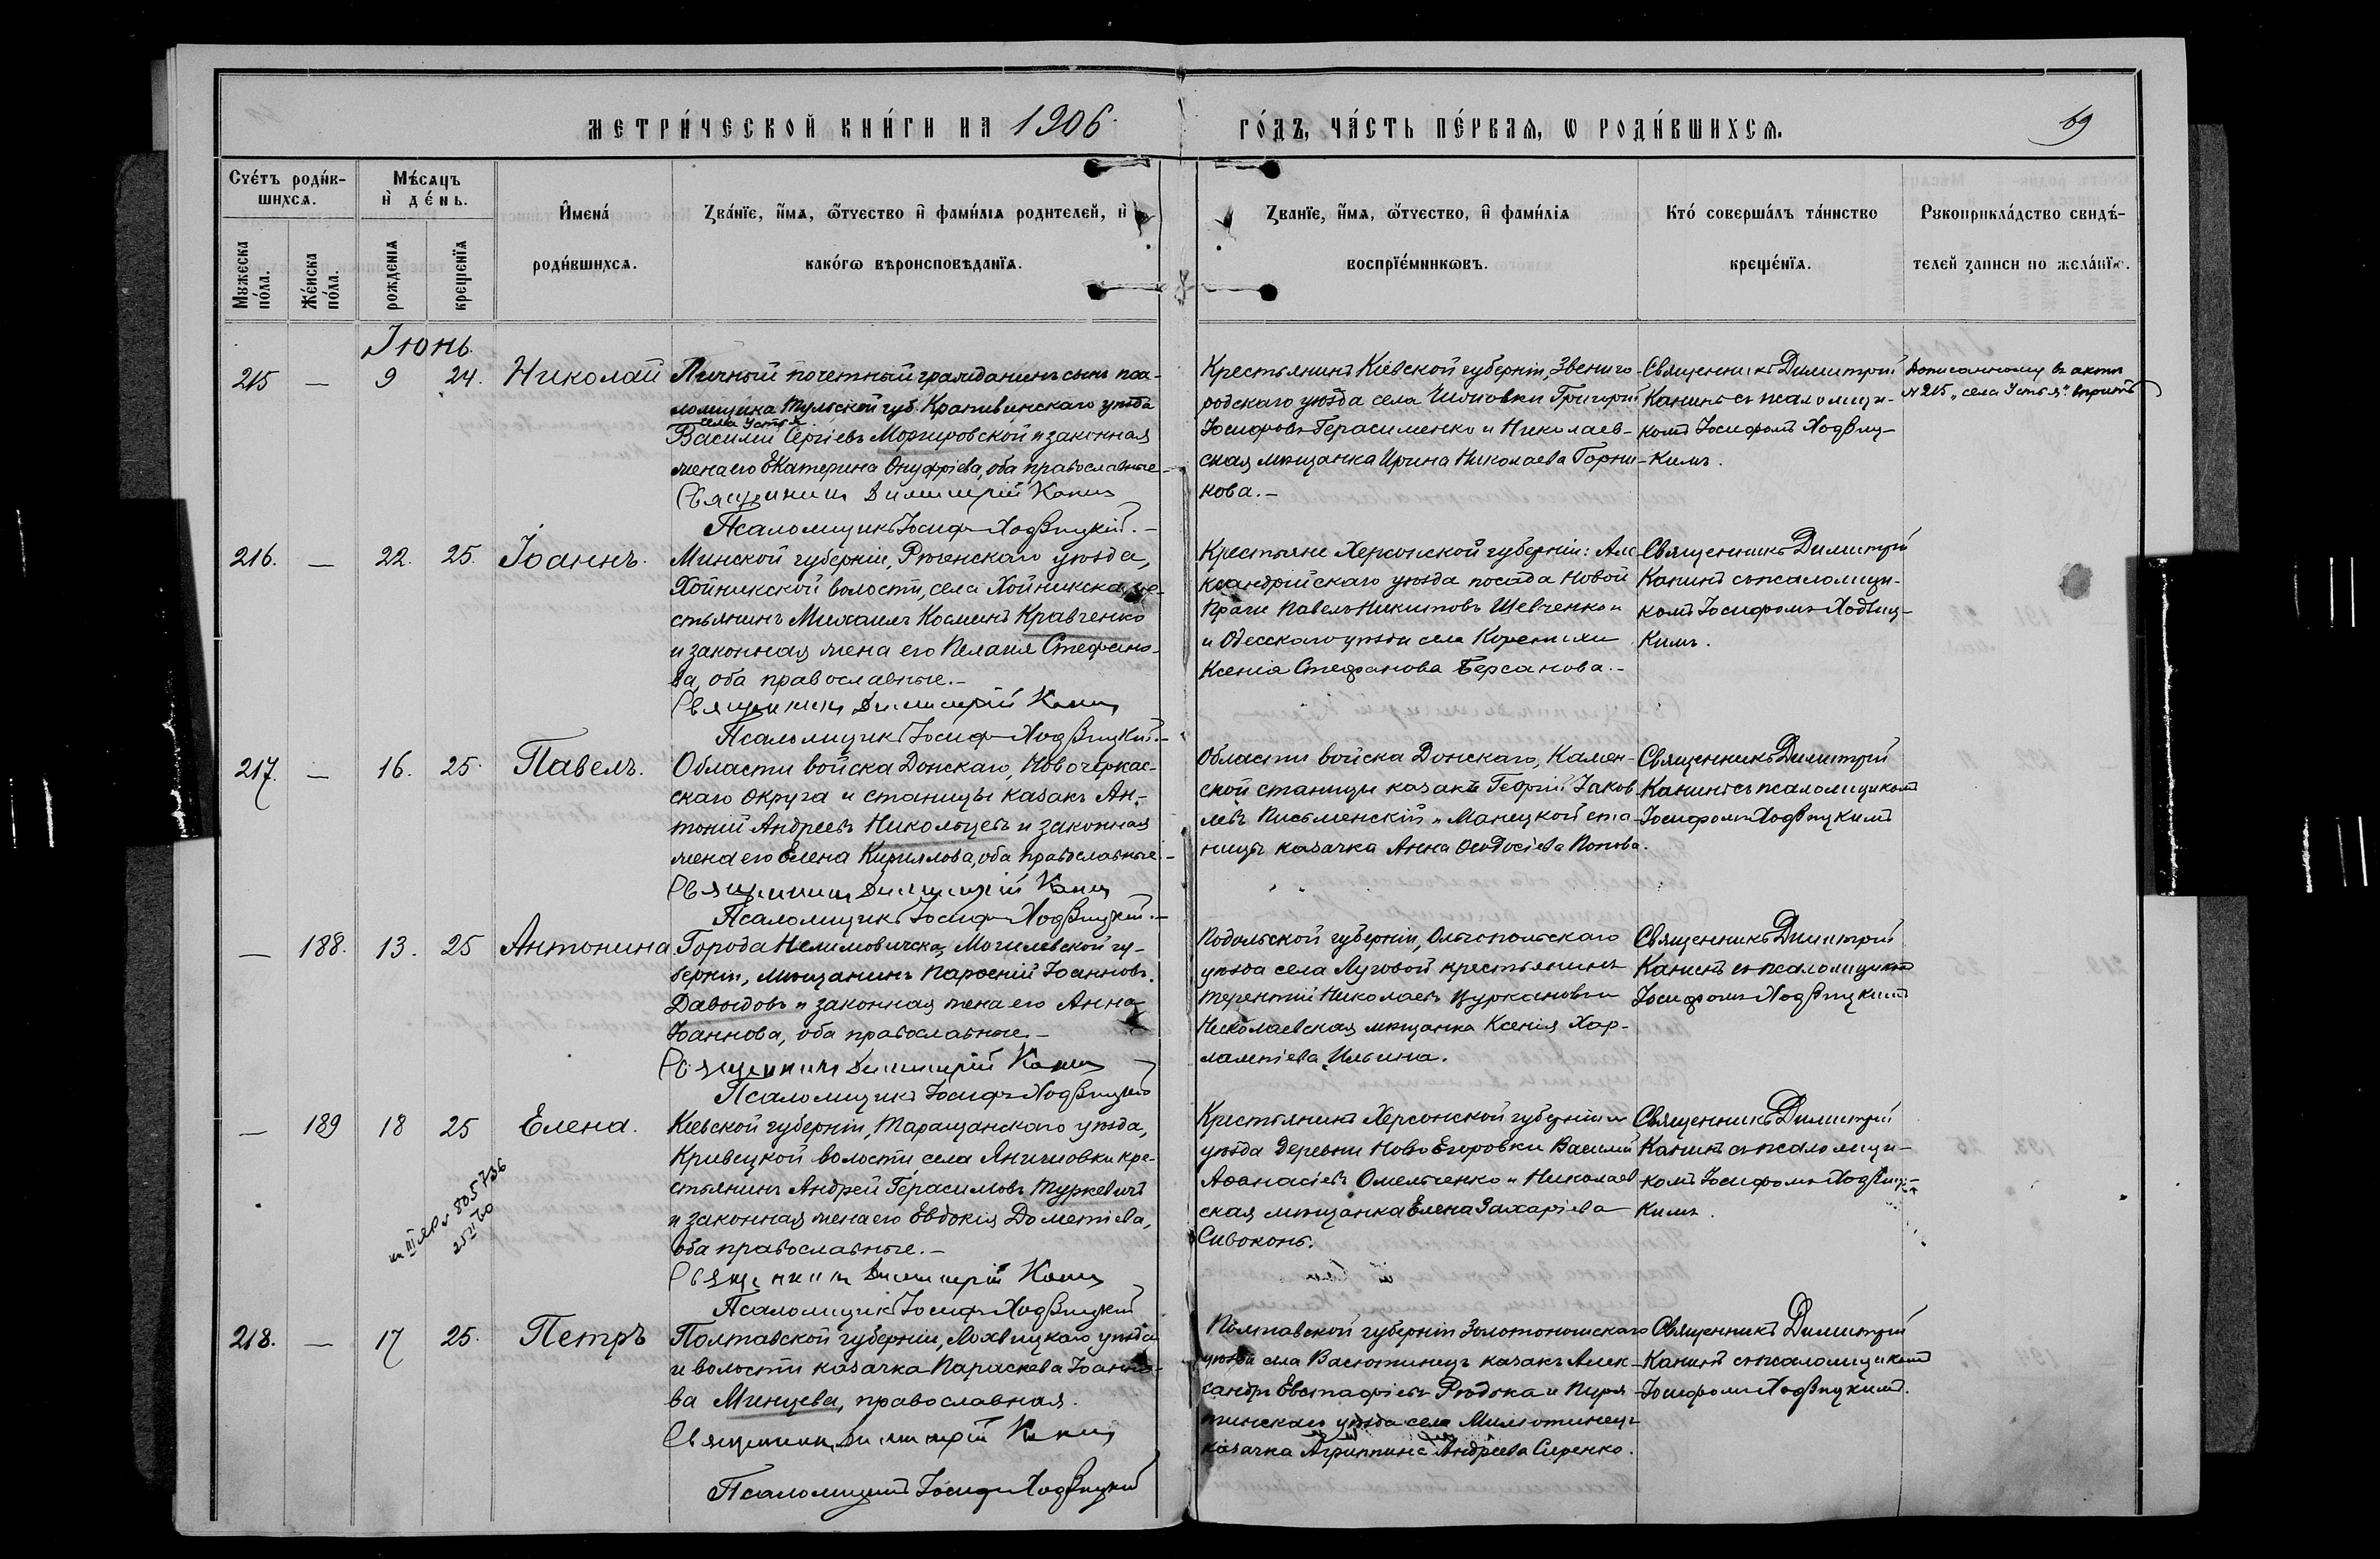 МЕТРИ́ЧЕСКОЙ КНИ́ГИ НА 1906
ГО́ДЪ, ЧА́СТЬ ПЕ́РВАЯ, Ѡ РОДИ́ВШИХСѦ.
69
Счéтъ роди́в-
шихсѧ.
Мѣ́сѧцъ
и҆ де́нь.
Мꙋжеска
по́ла.
Же́нска
по́ла.
рожденїѧ
крещенїѧ
И҆мена́
роди́вшихсѧ.
Зва́нїе, и҆́мѧ, ѻ҆́тчество и҆ фами́лїѧ родителей, и҆
како́гѡ вѣроисповѣ́данїѧ.
Зва́нїе, и҆́мѧ, ѻ҆́тчество, и҆ фами́лїѧ
воспрїе́мникѡвъ.
Кто́ соверша́лъ та́инство
креще́нїѧ.
Рꙋкоприкла́дство свидѣ́-
телей записи по жела́нїю.
Іюнь.
215 — 9 24. Николай
Личный почетный гражданинъ сынъ пса-
ломщика Тульской губ. Крапивинскаго уѣзда
села Устья
Василій Сергіевъ Моргировской и законная
жена его Екатерина Онуфріева, оба православные.-
Священникъ Димитрій Канинъ
Псаломщикъ Іосифъ Ходвицкій.-
Крестьянинъ Кіевской губерніи, Звениго-
родскаго уѣзда села Григорій
Іосифовъ Герасименко и Николаев-
ская мѣщанка Ирина Николаева Горни-
кова.-
Священникъ Димитрій
Канинъ съ псаломщи-
комъ Іосифомъ Ходвиц-
кимъ.
Дописанному въ актѣ
№ 215 „села Устья" вѣрить
216. — 22. 25. Іоаннъ.
Минской губерніи, Рѣченскаго уѣзда,
Хойникской волости, села Хойникска, кре-
стьянинъ Михаилъ Косминъ Кравченко
и законная жена его Пелагія Стефано-
ва, оба православные.-
Священникъ Димитрій Канинъ
Псаломщикъ Іосифъ Ходвицкій.-
Крестьяне Херсонской губерніи: Але-
ксандрійскаго уѣзда посада Новой
Праги Павелъ Никитовъ Шевченко и
и Одесскаго уѣзда села Коренихи
Ксенія Стефанова Берсанова.-
Священникъ Димитрій
Канинъ съ псаломщи-
комъ Іосифомъ Ходвиц-
кимъ.
217. — 16. 25. Павелъ.
Области войска Донскаго, Новочеркас-
скаго округа и станицы казакъ Ан-
тоній Андреевъ Никольцевъ и законная
жена его Елена Кириллова, оба православные.-
Священникъ Димитрій Канинъ
Псаломщикъ Іосифъ Ходвицкій.-
Области войска Донскаго, Камен-
ской станицы казакъ Георгій Іаков
левъ Письменскій и Манецкой ста-
ницы казачка Анна Ѳеодосіева Попова.
Священникъ Димитрій
Канинъ съ псаломщикомъ
Іосифомъ Ходвицкимъ
— 188. 13. 25 Антонина
Города Могилевской гу-
берніи, мѣщанинъ Парѳеній Іоанновъ
Давыдовъ и законная жена его Анна
Іоаннова, оба православные.-
Священникъ Димитрій Канинъ
Псаломщикъ Іосифъ Ходвицкій
Подольской губерніи, Ольгопольскаго
уѣзда села Луговой крестьянинъ
Терентій Николаевъ Цуркановъ и
Николаевская мѣщанка Ксенія Хар-
лампіева Ильина.
Священникъ Димитрій
Канинъ съ псаломщикомъ
Іосифомъ Ходвицкимъ
— 189 18 25 Елена.
Кіевской губерніи, Таращанскаго уѣзда,
Кривецкой волости села Янишовки кре-
стьянинъ Андрей Герасимовъ Туркевичъ
и законная жена его Евдокія Дометіева,
оба православные.-
Священникъ Димитрій Канинъ
Псаломщикъ Іосифъ Ходвицкій
Крестьянинъ Херсонской губерніи и
уѣзда деревни Ново Егоровки Василій
Аѳанасіевъ Омельченко и Николаев
ская мѣщанка Елена Захаріева
Сивоконь.
Священникъ Димитрій
Канинъ съ псаломщи-
комъ Іосифомъ Ходвиц-
кимъ.
805736
218. — 17 25. Петръ
Полтавской губерніи, Лохвицкаго уѣзда
и волости казачка Параскева Іоанно-
ва Минцева, православная.
Священникъ Димитрій Канинъ
Псаломщикъ Іосифъ Ходвицкій
Полтавской губерніи Золотоношскаго
уѣзда села Васютинецъ казакъ Алек-
сандръ Евстафіевъ Рѣдька и Пиря-
тинскаго уѣзда села Милютинецъ
казачка Агриппина Андреева Сиренко.
Священникъ Димитрій
Канинъ съ псаломщикомъ
Іосифомъ Ходвицкимъ.